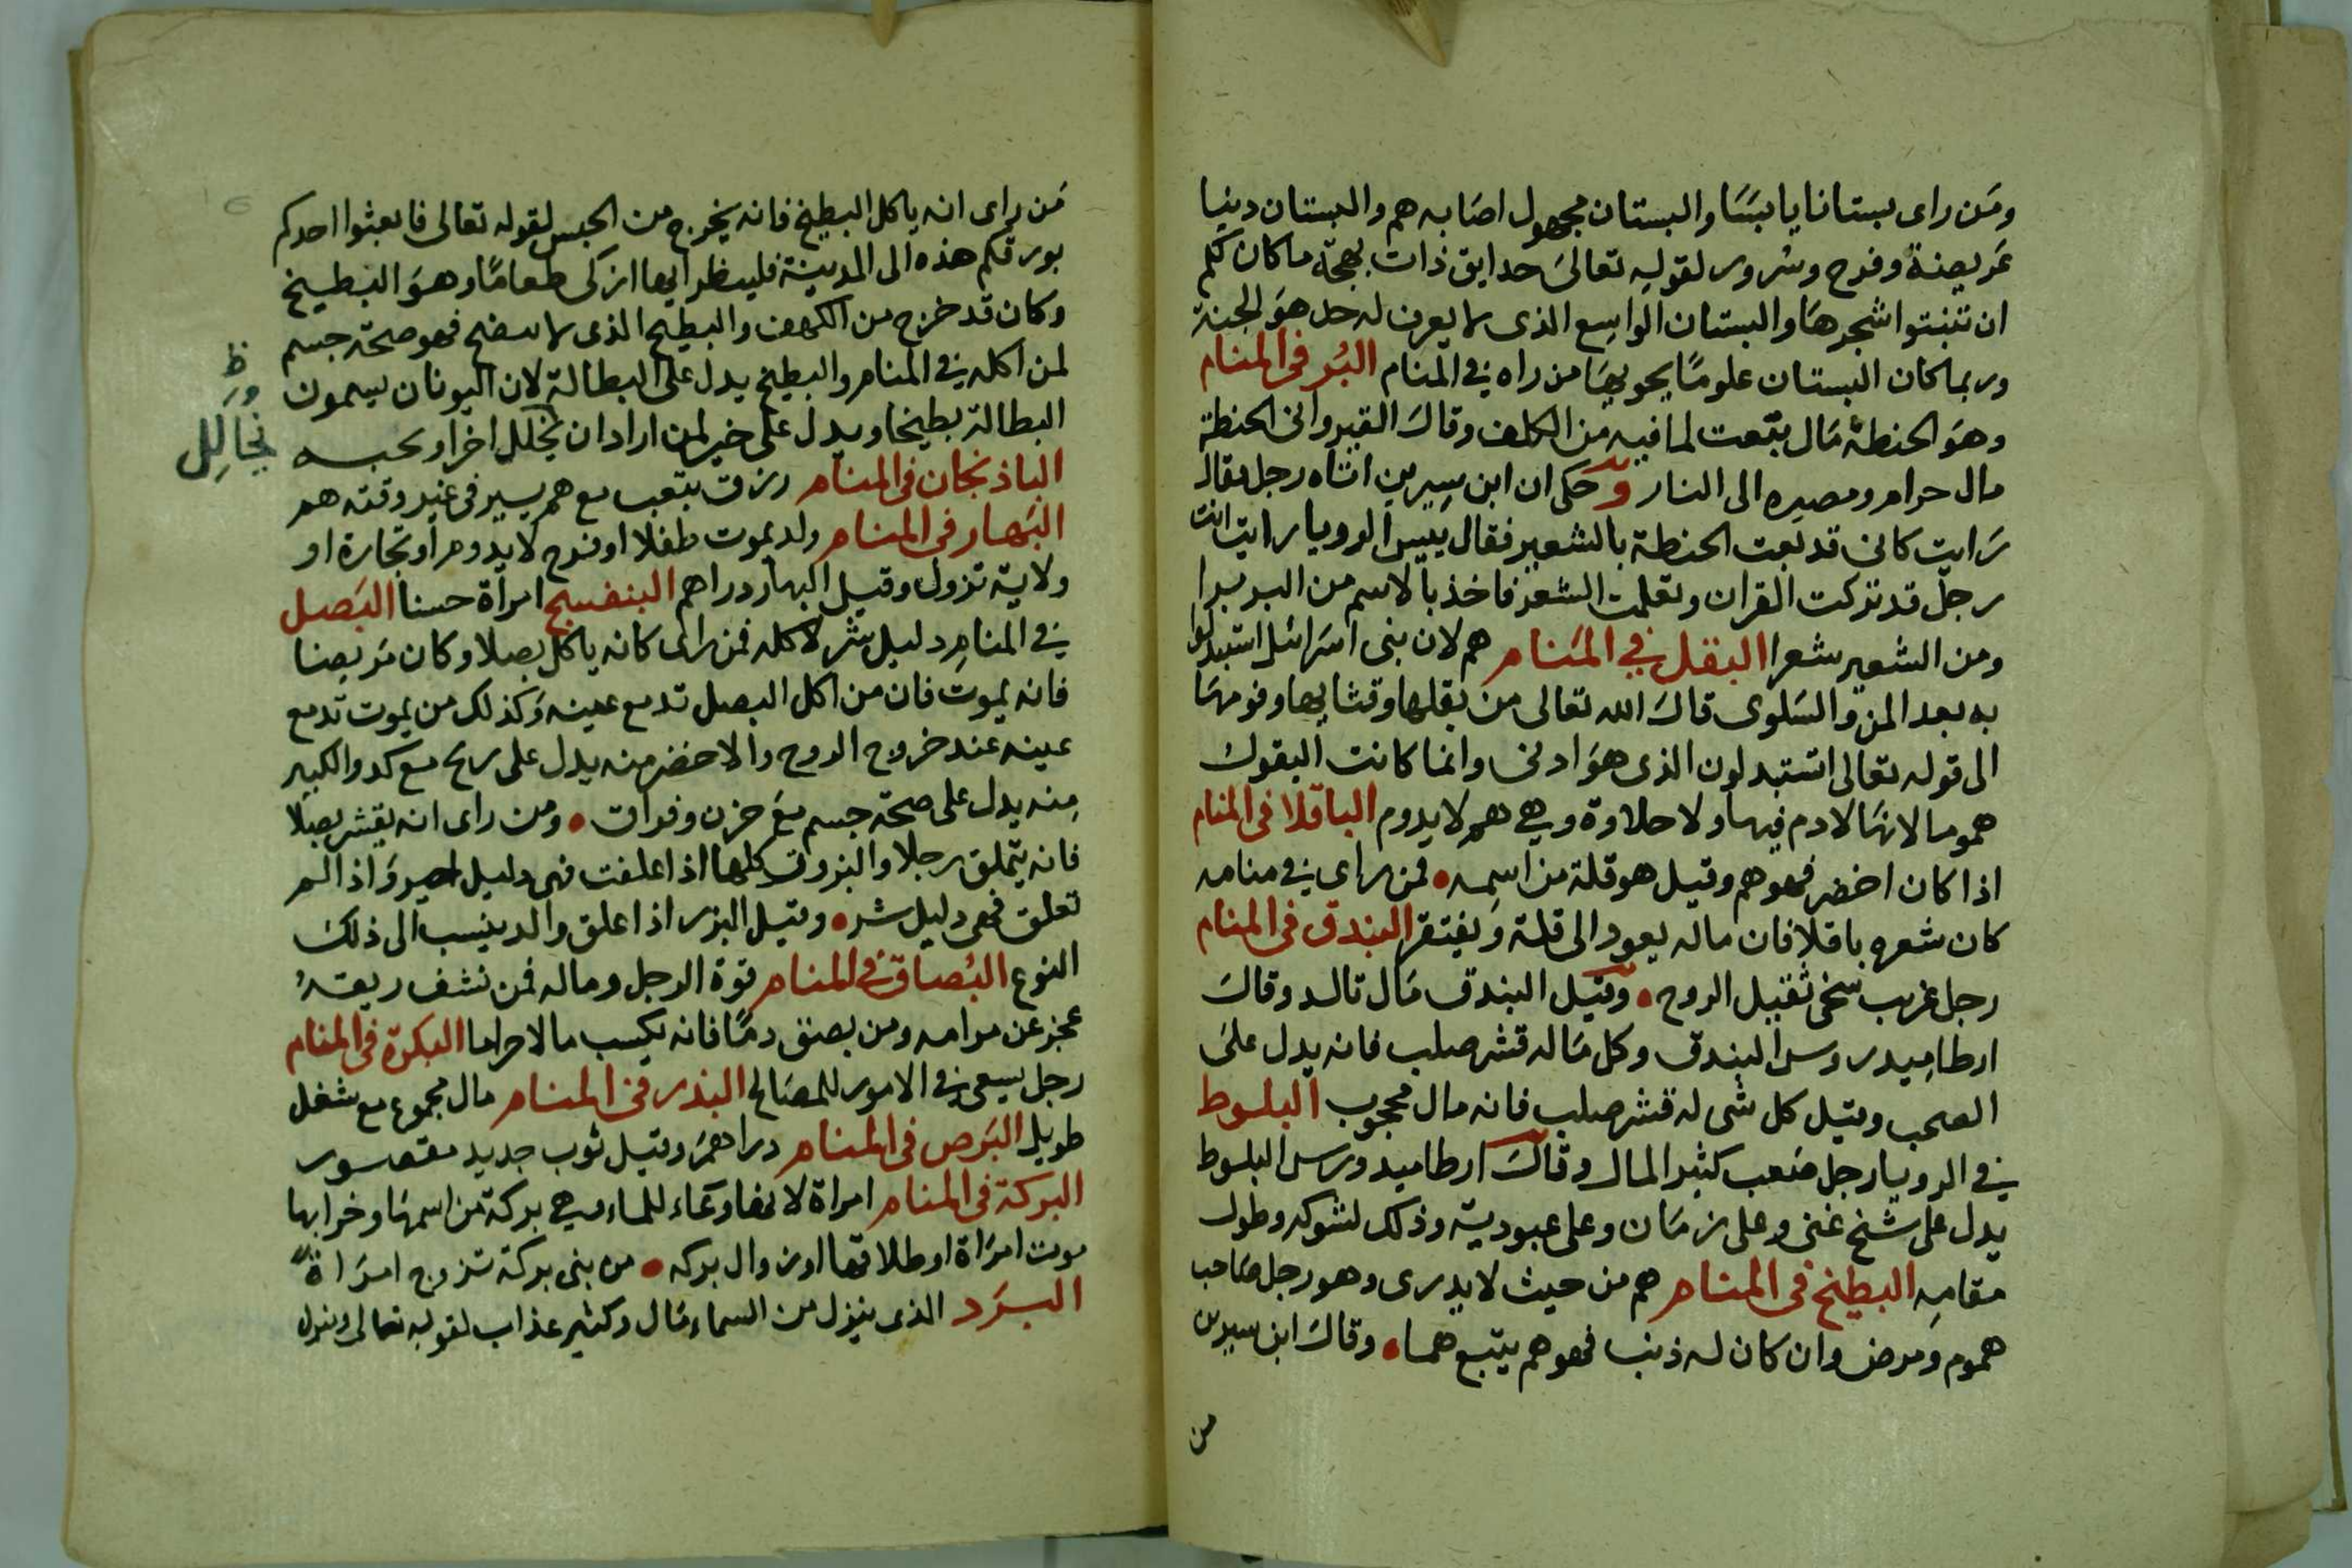 ومن راى بستانا يابسا والبستان مجهول اصابه هم والبستان دنيا
عريضة وفرح وسرور لقوله تعالى حدايق ذات بهجة ما كان لكم
ان تنبتوا شجرها والبستان الواسع الذى لا يعرف له حد هو الجنة
وربما كان البستان علوما يحويها من راه فى المنام البُر فى المنام
وهو الحنطة مال بتعت لما فيه من الكلف وقال القيروانى الحنطة
مال حرام ومصيره الى النار وحكى ان ابن سيرين اتاه رجل فقال
رايت كانى قد بعت الحنطة بالشعير فقال بيس الرويا رايت انت
رجل قد تركت القران وتعلمت الشعر فاخذ بالاسم من البر برا
ومن الشعير شعرا البقل فى المنام هم لان بنى اسرائيل استبدلوا
به بعد المن والسلوى قال الله تعالى من بقلها وقثايها وفومها
الى قوله تعالى اتستبدلون الذى هو ادنى وانما كانت البقول
هموما لانها لا دم فيها ولا حلاوة وهى هم لا يدوم الباقلا فى المنام
اذا كان اخضر فهو هم وقيل هو قلة من اسمه فمن راى فى منامه
كان شعره باقلا فان ماله يعود الى قلة ويفتقر البندق فى المنام
رجل غريب سخى ثقيل الروح وقيل البندق مال تالد وقال
ارطاميدروس البندق وكل ماله قشر صلب فانه يدل على
الصحب وقيل كل شى له قشر صلب فانه مال محجوب البلوط
فى الرويا رجل صعب كثير المال وقال ارطاميدورس البلوط
يدل على شيخ غنى وعلى زمان وعلى عبودية وذلك لشوكه وطول
مقامه البطيخ فى المنام هم من حيث لا يدرى وهو رجل صاحب
هموم ومرض وان كان له ذنب فهو هم يتبع هما وقال ابن سيرين
من
من راى انه ياكل البطيخ فانه يخرج من الحبس لقوله تعالى فابعثوا احدكم
بورقكم هذه الى المدينة فلينظر ايها ازكى طعاما وهو البطيخ
وكان قد خرج من الكهف والبطيخ الذى لا ينضج فهو صحة جسم
لمن اكله فى المنام والبطيخ يدل على البطالة لان اليونان يسمون
البطالة بطيخا ويدل على خير لمن اراد ان يخلل اخرا وبحبه
ظ
يخالل
الباذنجان فى المنام رزق بتعب مع هم يسير فى غير وقته هم
البهار فى المنام ولد يموت طفلا او فرح لا يدوم او تجارة او
ولاية تزول وقيل البهار دراهم البنفسج امراة حسنا البصل
فى المنام دليل شر لاكله فمن راى كانه ياكل بصلا وكان مريضا
فانه يموت فان من اكل البصل تدمع عينه وكذلك من يموت تدمع
عينه عند خروج الروح والاخضر منه يدل على ربح مع كد والكبير
منه يدل على صحة جسم مع حزن وفراق ومن راى انه يقشر بصلا
فانه يتملق رجلا والبزور كلها اذا علفت فهى دليل خير واذا لم
تعلق فهى دليل شر وقيل البزر اذا علق والد ينسب الى ذلك
النوع البُصاق فى المنام قوة الرجل وماله فمن نشف ريقه
عجز عن مرامه ومن بصق دما فانه يكسب مالا حراما البكرة فى المنام
رجل يسعى فى الامور للمصالح البذر فى المنام مال مجموع مع شغل
طويل البرص فى المنام دراهم وقيل ثوب جديد مقصور
البركة فى المنام امراة لانها وعاء للماء وهى بركة من اسمها وخرابها
موت امراة او طلاقها او زوال بركه من بنى بركة تزوج امراة
البرد الذى ينزل من السماء مال وكثير عذاب لقوله تعالى وينزل